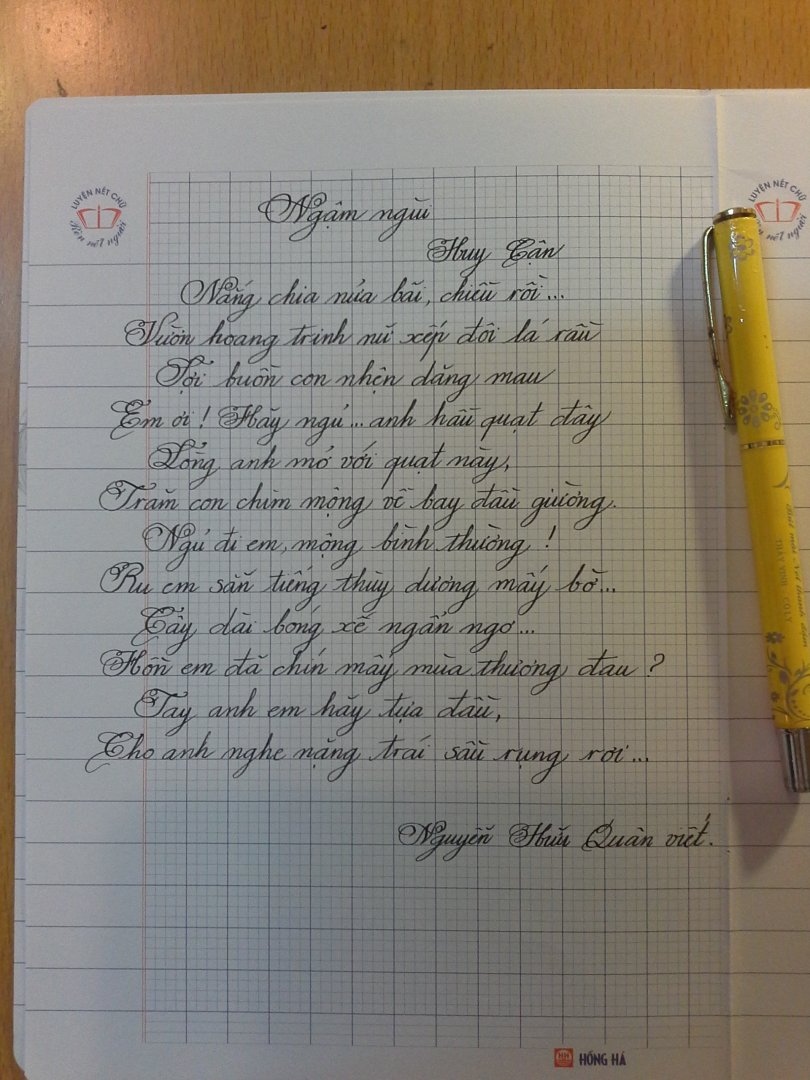 LUYỆN NÉT CHỮ
Rèn nết người
LUYỆN NÉT CHỮ
nết người
Ngậm ngùi
Huy Cận
Nắng chia nửa bãi, chiều rồi...
Vườn hoang trinh nữ xếp đôi lá rầu
Sợi buồn con nhện dăng mau
Em ơi! Hãy ngủ... anh hầu quạt đây
Lòng anh mở với quạt này,
Trăm con chim mộng về bay đầu giường.
Ngủ đi em, mộng bình thường!
Ru em sẵn tiếng thùy dương mấy bờ...
Cây dài bóng xế ngẩn ngơ...
Hồn em đã chín mấy mùa thương đau?
Tay anh em hãy tựa đầu,
Cho anh nghe nặng trái sầu rụng rơi...
Nguyễn Hữu Quân viết.
HH HỒNG HÀ